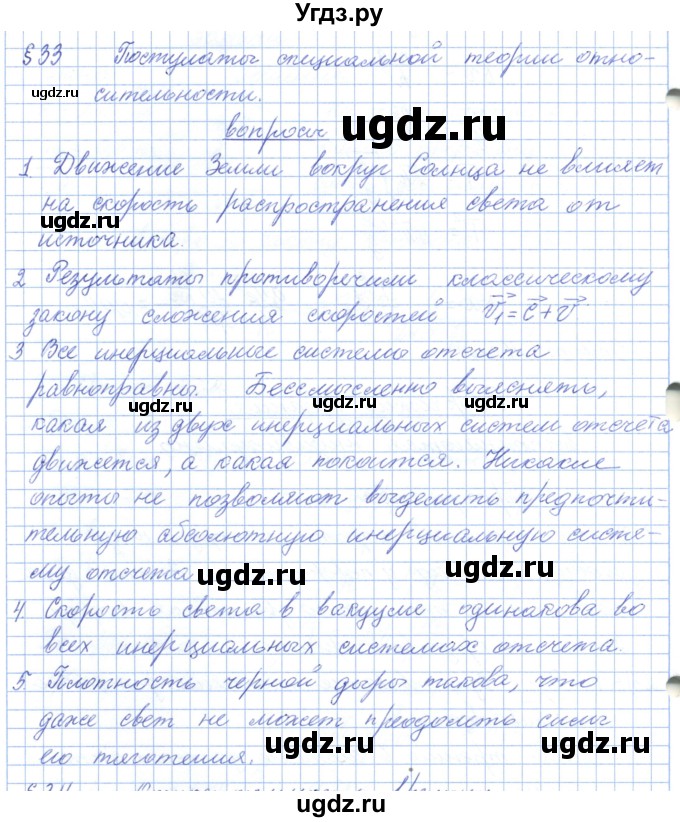 Угдз.ру
§33 Постулаты специальной теории отно-
сительности.
вопросы
1 Движение Земли вокруг Солнца не влияет
на скорость распространения света от
источника.
2 Результаты противоречили классическому
закону сложения скоростей v₁ = c + v
3 Все инерциальные системы отсчета
равноправны. Бессмысленно выяснять,
какая из двух инерциальных систем отсчета
движется, а какая покоится. Никакие
опыты не позволяют выделить предпочти-
тельную абсолютную инерциальную систе-
му отсчета
4. Скорость света в вакууме одинакова во
всех инерциальных системах отсчета.
5. Плотность черной дыры такова, что
даже свет не может преодолеть силы
его тяготения.
ugdz.ru
ugdz.ru
ugdz.ru
ugdz.ru
ugdz.ru
ugdz.ru
ugdz.ru
ugdz.ru
ugdz.ru
ugdz.ru
ugdz.ru
ugdz.ru
ugdz.ru
ugdz.ru